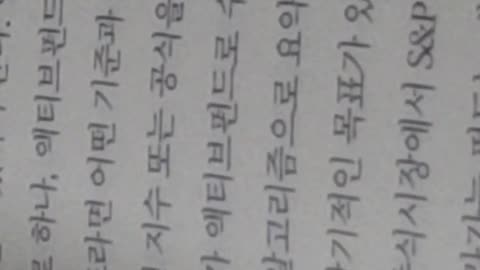 하나, 액티브펀드
라면 어떤 기준과
지수 또는 공식을
가 액티브펀드로
알고리즘으로 요의
기적인 목표가
식시장에서 S&P